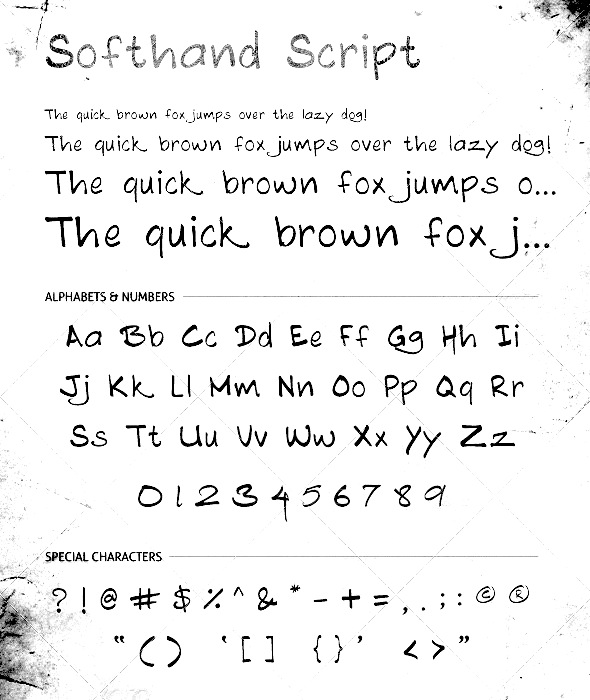 Softhand Script
The quick brown fox jumps over the lazy dog!
The quick brown fox jumps over the lazy dog!
The quick brown fox jumps o...
The quick brown fox j...
ALPHABETS & NUMBERS
Aa Bb Cc Dd Ee Ff Gg Hh Ii
Jj Kk Ll Mm Nn Oo Pp Qq Rr
Ss Tt Uu Vv Ww Xx Yy Zz
0 1 2 3 4 5 6 7 8 9
SPECIAL CHARACTERS
? ! @ # $ % ^ & * - + = , . ; : © ®
“ ( ) ‘ [ ] { } ’ < > ”